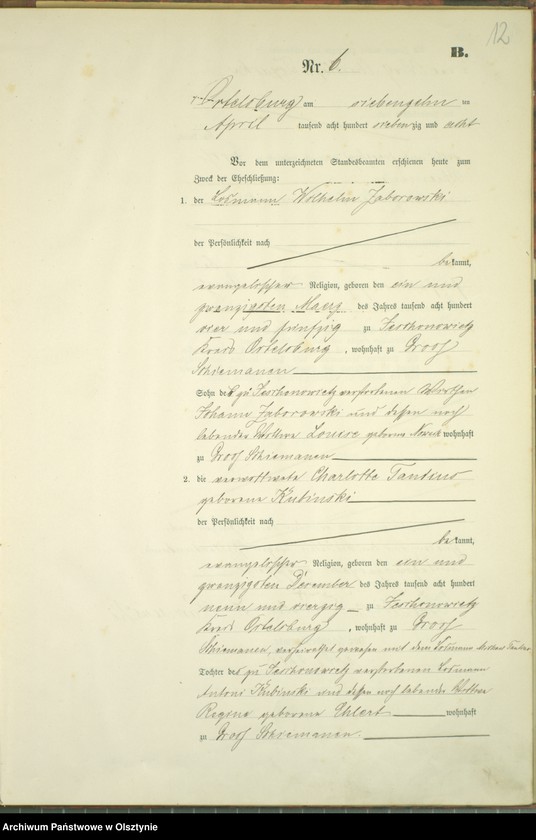 12
B.
Nr. 6.
Ortelsburg am siebenzehn ten
April tausend acht hundert siebenzig und acht
Vor dem unterzeichneten Standesbeamten erschienen heute zum
Zweck der Eheschließung:
1. der Losmann Wilhelm Jaborowski
der Persönlichkeit nach
bekannt,
evangelischer Religion, geboren den ein und
zwanzigsten Maerz des Jahres tausend acht hundert
vier und fünfzig zu Seschonowietz
Kreis Ortelsburg, wohnhaft zu Groß
Schiemanen
Sohn des zu Seschonowietz verstorbenen Wirthen
Johann Jaborowski und dessen noch
lebenden Wittwe Louise geborne wohnhaft
zu Groß Schiemanen
2. die verwittwete Charlotte
geborene Kubinski
der Persönlichkeit nach
bekannt,
evangelischer Religion, geboren den ein und
zwanzigsten December des Jahres tausend acht hundert
neun und vierzig zu Seschonowietz
Kreis Ortelsburg, wohnhaft zu Groß
Schiemanen, verheirathet gewesen mit dem Losmann
Tochter des zu Seschonowietz verstorbenen Losmann
Antoni Kubinski und dessen noch lebende Wittwe
Regine geborene Ehlert wohnhaft
zu Groß Schiemanen.
Archiwum Państwowe w Olsztynie